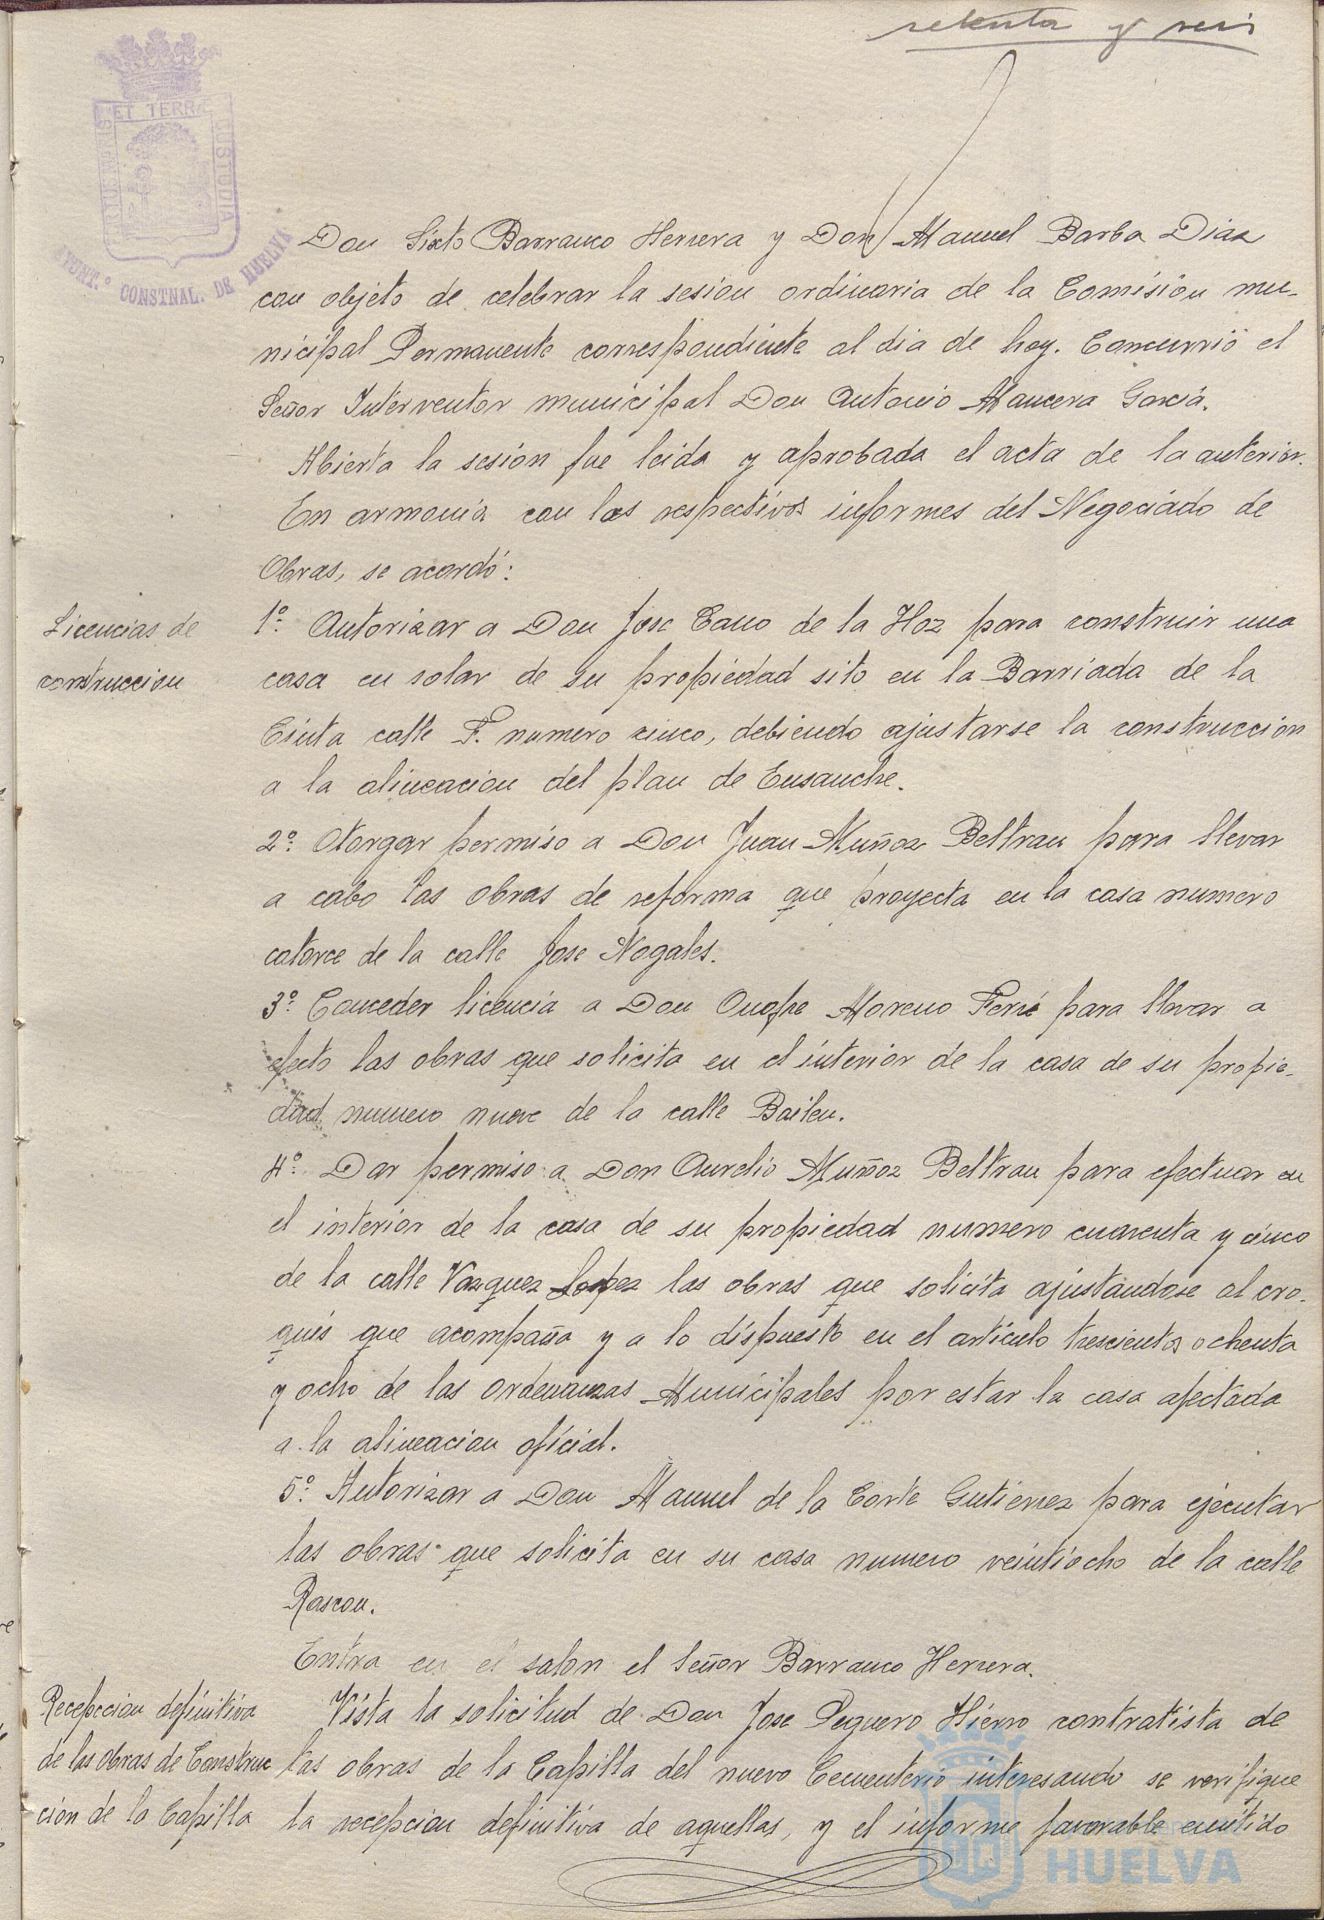 setenta y seis
PORTUS MARIS ET TERRÆ CUSTODIA
AYUNT.º CONSTNAL. DE HUELVA
Don Sixto Barranco Herrera y Don Manuel Barba Diaz
con objeto de celebrar la sesion ordinaria de la Comisión mu-
nicipal Permanente correspondiente al dia de hoy. Concurrió el
Señor Interventor municipal Don Antonio Mancera García.
Abierta la sesión fue leida y aprobada el acta de la anterior.
En armonia con los respectivos informes del Negociado de
Obras, se acordó:
Licencias de
construccion
1º. Autorizar a Don Jose Cano de la Hoz para construir una
casa en solar de su propiedad sito en la Barriada de la
Cinta calle F. numero cinco, debiendo ajustarse la construccion
a la alineacion del plan de Ensanche.
2º. Otorgar permiso a Don Juan Muñoz Beltran para llevar
a cabo las obras de reforma que proyecta en la casa numero
catorce de la calle Jose Nogales.
3º. Conceder licencia a Don Onofre Moreno Feria para llevar a
efecto las obras que solicita en el interior de la casa de su propie-
dad numero nueve de la calle Bailen.
4º. Dar permiso a Don Aurelio Muñoz Beltran para efectuar en
el interior de la casa de su propiedad numero cuarenta y cinco
de la calle Vazquez Lopez las obras que solicita ajustandose al cro-
quis que acompaña y a lo dispuesto en el articulo trescientos ochenta
y ocho de las Ordenanzas Municipales por estar la casa afectada
a la alineacion oficial.
5º. Autorizar a Don Manuel de la Corte Gutierrez para ejecutar
las obras que solicita en su casa numero veintiocho de la calle
Rascon.
Entra en el salon el Señor Barranco Herrera.
Recepcion definitiva
de las Obras de Construc
cion de la Capilla
Vista la solicitud de Don Jose Peguero Hierro contratista de
las obras de la Capilla del nuevo Cementerio interesando se verifique
la recepcion definitiva de aquellas, y el informe favorable emitido
HUELVA